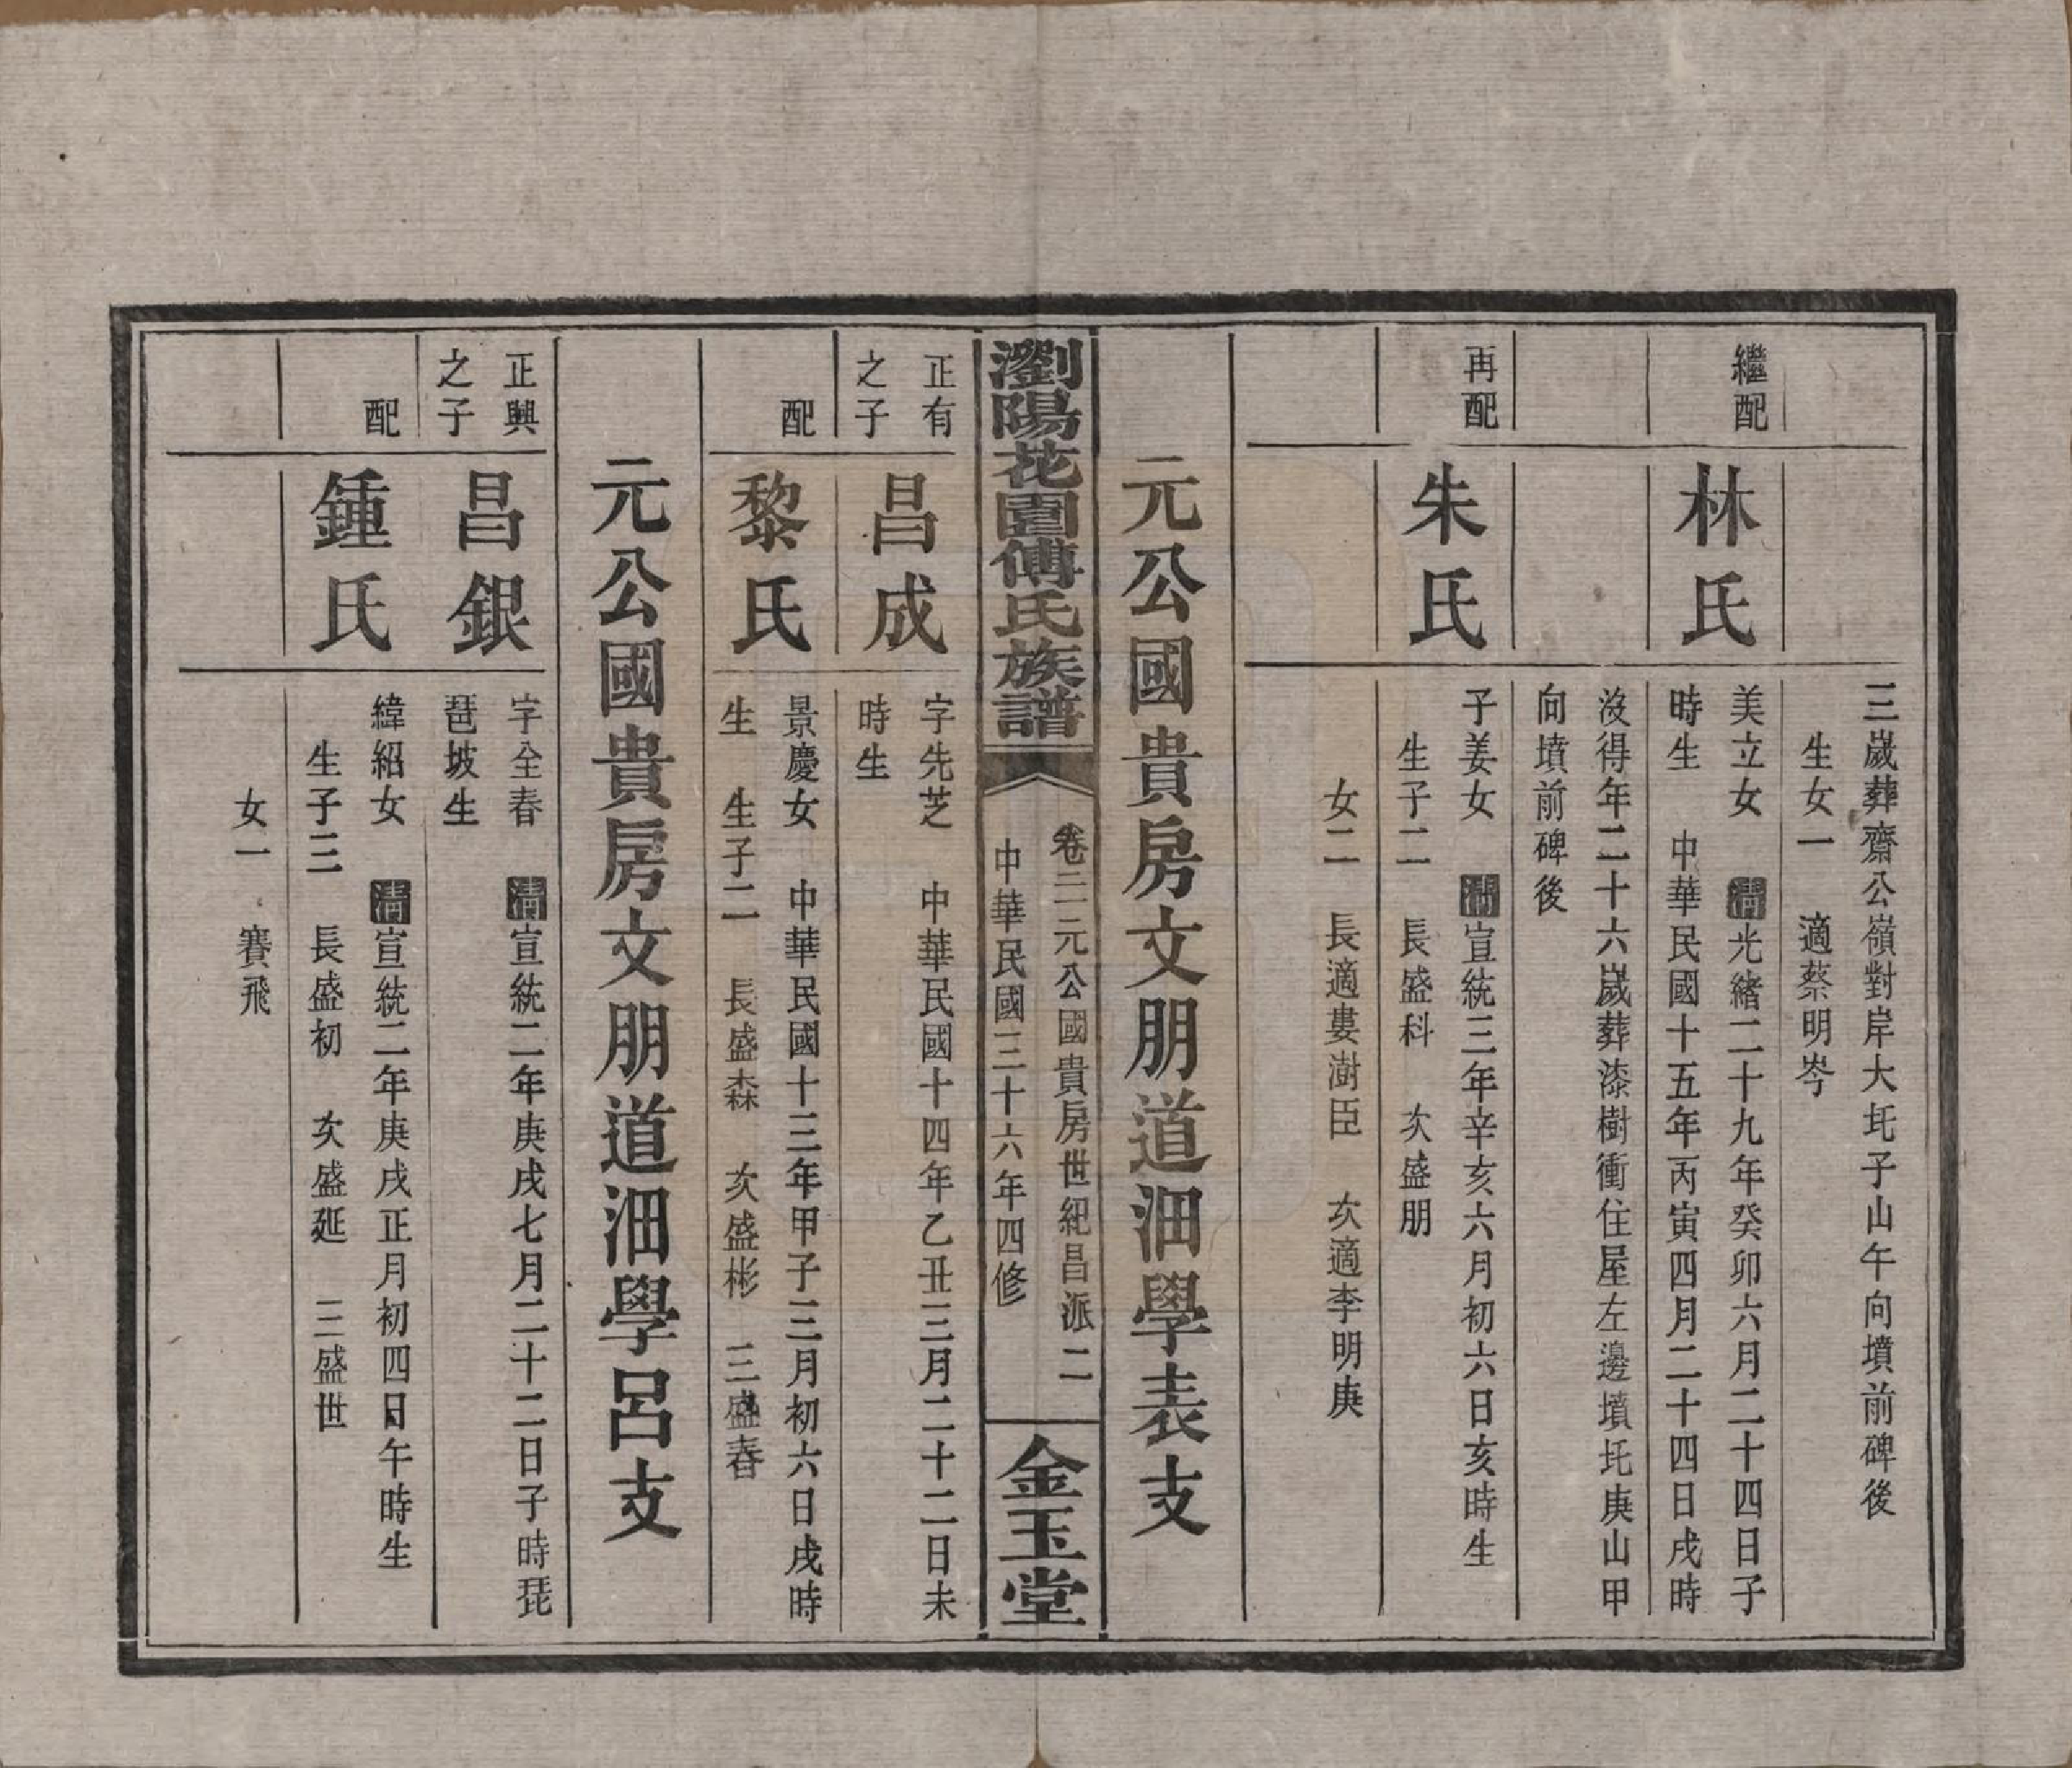 三嵗葬齋公嶺對岸大坉子山午向墳前碑後
生女一　適蔡明岑
繼配
林氏
美立女　清光緒二十九年癸卯六月二十四日子
時生　中華民國十五年丙寅四月二十四日戌時
沒得年二十六嵗葬漆樹衝住屋左邊墳坉庚山甲
向墳前碑後
再配
朱氏
子姜女　清宣統三年辛亥六月初六日亥時生
生子二　長盛科　次盛朋
女二　長適婁澍臣　次適李明庚
元公國貴房文朋道沺學表支
瀏陽花園傅氏族譜
卷三元公國貴房世紀昌派　二
中華民國三十六年四修
金玉堂
正有
之子
昌成
字先芝　中華民國十四年乙丑三月二十二日未
時生
配
黎氏
景慶女　中華民國十三年甲子三月初六日戌時
生　生子二　長盛森　次盛彬　三盛春
元公國貴房文朋道沺學呂支
正興
之子
昌銀
字全春　清宣統二年庚戌七月二十二日子時琵
琶坡生
配
鍾氏
緯紹女　清宣統二年庚戌正月初四日午時生
生子三　長盛初　次盛延　三盛世
女一　賽飛